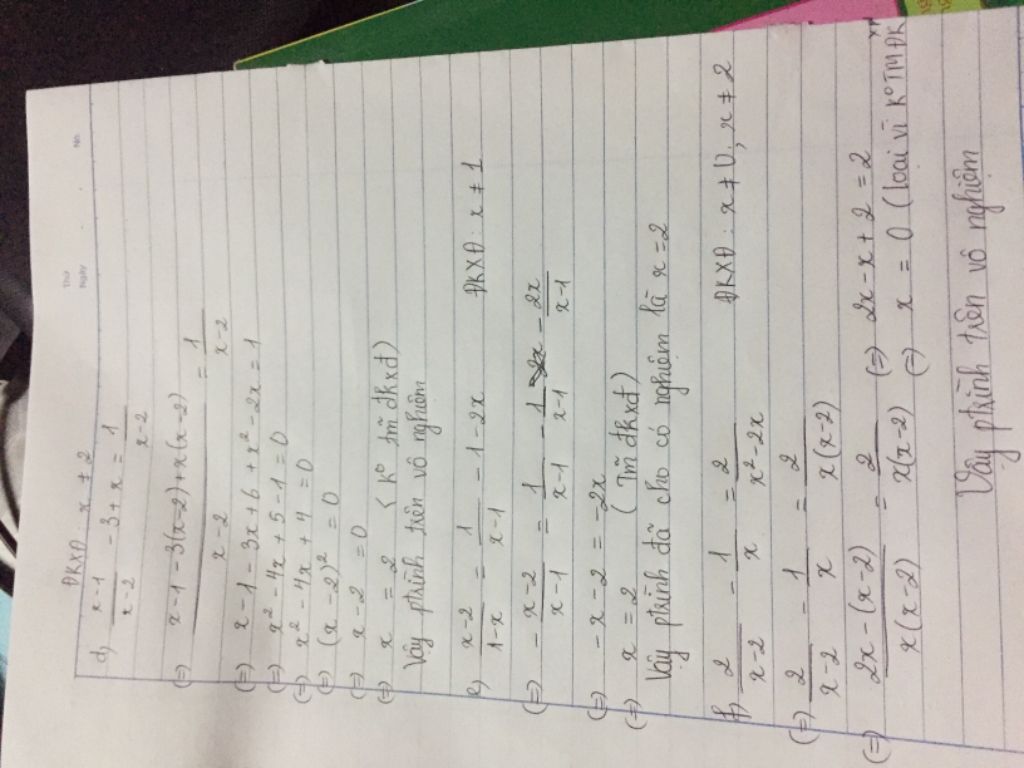 No
Thứ
Ngày
ĐKXĐ: x ≠ 2
d) x-1/x-2 - 3 + x = 1/x-2
(=) x-1-3(x-2)+x(x-2)/x-2 = 1/x-2
(=) x-1-3x+6+x²-2x=1
(=) x²-4x+5-1=0
(=) x²-4x+4=0
(=) (x-2)²=0
(=) x-2=0
(=) x = 2 (K° tm đkxđ)
Vậy ptrình trên vô nghiệm
e) x-2/1-x = 1/x-1 - 1-2x ĐKXĐ: x ≠ 1
(=) - x-2/x-1 = 1/x-1 - 1/x-1 - 2x/x-1
(=) -x-2 = -2x
(=) x = 2 (Tm đkxđ)
Vậy ptrình đã cho có nghiệm là x=2
f) 2/x-2 - 1/x = 2/x²-2x ĐKXĐ: x ≠ 0, x ≠ 2
(=) 2/x-2 - 1/x = 2/x(x-2)
(=) 2x-(x-2)/x(x-2) = 2/x(x-2) (=) 2x-x+2=2
(=) x = 0 (loại vì K° TMĐK
Vậy ptrình trên vô nghiệm